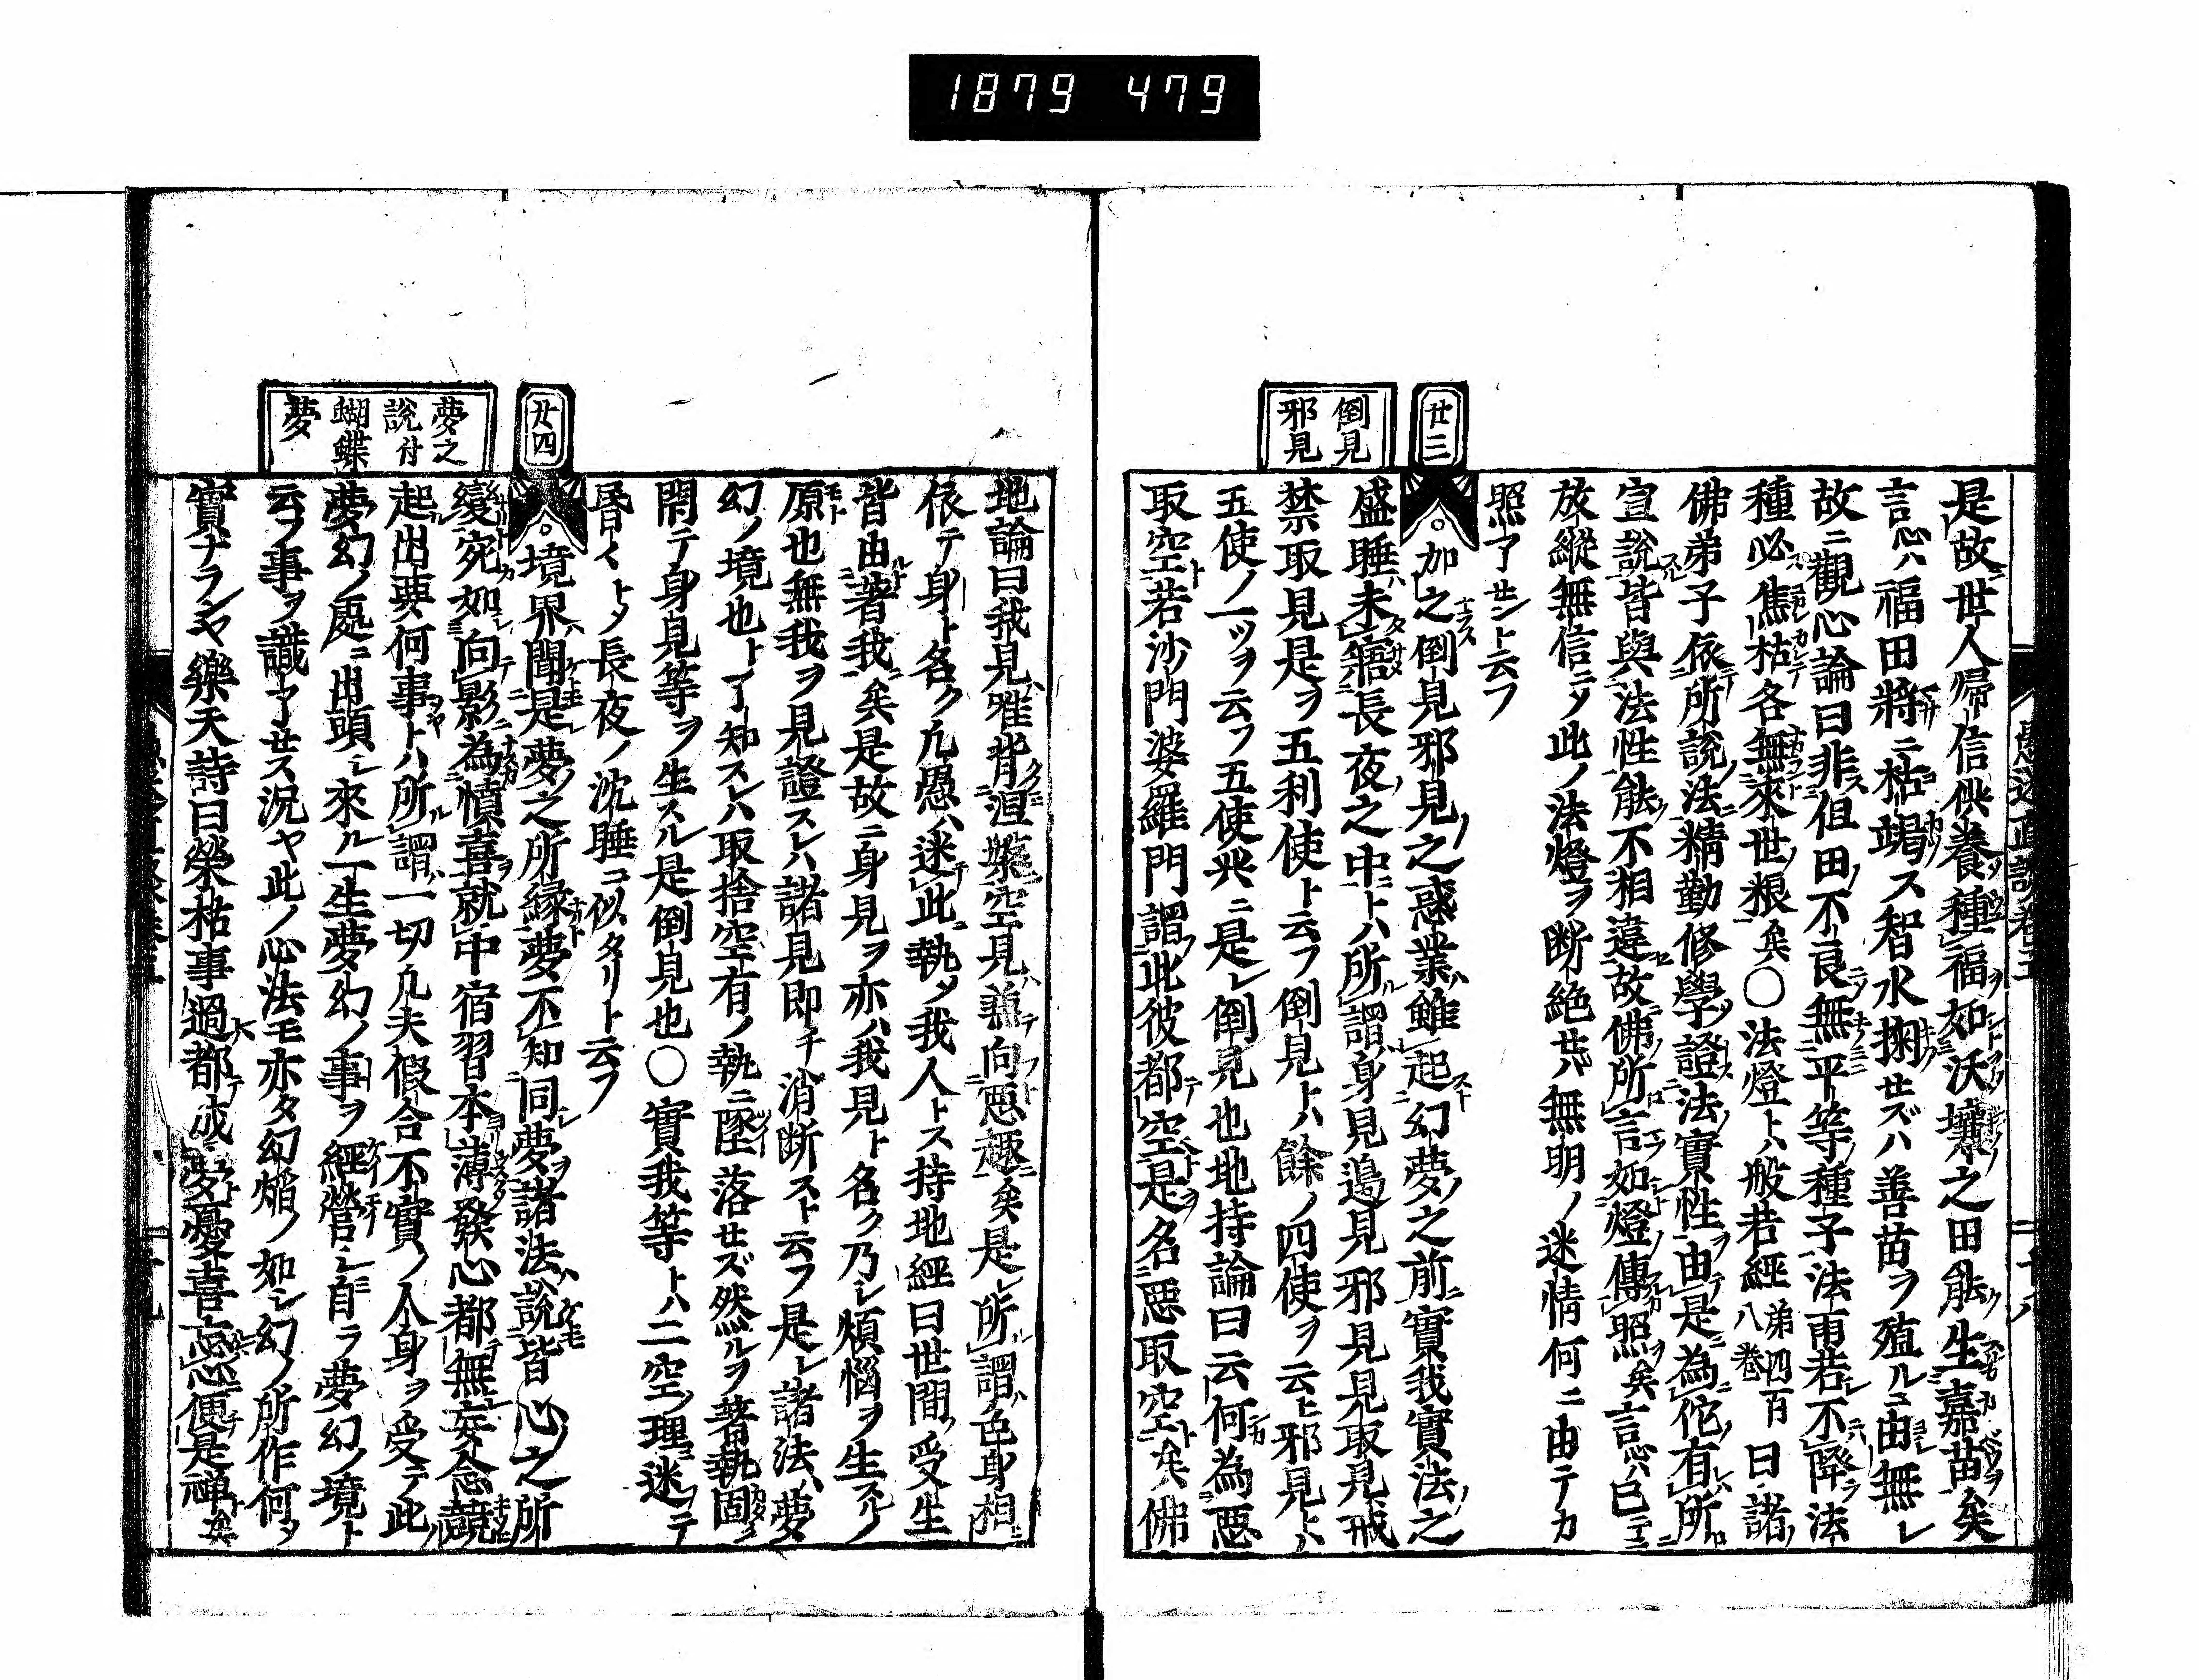 1879 479
是故世人帰信供養種福如沃壤之田能生嘉苗矣
言心ハ福田將ニ枯竭ス智水掬セズハ善苗ヲ殖ルコ由無レ
故ニ觀心論曰非但田不良無平等種子法雨若不降法
種必焦枯各無來世粮矣○法燈トハ般若經第四百八巻曰諸
佛弟子依所說法精勤修學證法實性由是為佗有所
宣說皆與法性能不相違故佛所言如燈傳照矣言心ハ已
放縱無信ニ〆此ノ法燈ヲ断絶セバ無明ノ迷情何ニ由テカ
照了センと云フ
廿三
倒見
邪見
加之倒見邪見之惑業雖起幻夢之前實我實法之
盛睡未寤長夜之中トハ所謂身見邊見邪見見取見戒
禁取見是ヲ五利使ト云フ倒見トハ餘ノ四使ヲ云ヒ邪見トハ
五使ノ一ツヲ云フ五使共ニ是レ倒見也地持論曰云何為惡
取空若沙門婆羅門謂此彼都空是名惡取空矣佛
地論曰我見雖背涅槃空見兼向惡趣矣是レ所謂色身相
依テ身ト名ク凢愚ハ迷此執〆我人トス持地經曰世間受生
皆由著我矣是故ニ身見ヲ亦ハ我見ト名ク乃レ煩惱ヲ生スルノ
原也無我ヲ見證スレハ諸見即チ消断スト云フ是レ諸法ハ夢
幻ノ境也ト了知スレハ取捨空有ノ執ニ墜落セズ然ルヲ著執固
閇テ身見等ヲ生スル是倒見也○實我等トハ二空ノ理ニ迷テ
昏々ト〆長夜ノ沈睡ニ似タリト云フ
廿四
夢之
說付
蝴蝶
夢
境界聞是夢之所縁夢不知同夢諸法ハ說皆心之所
變宛如向影為憤喜就中宿習本薄發心都無妄念競
起出要何事トハ所謂一切凢夫假合不實ノ人身ヲ受テ此
夢幻ノ處ニ出頭シ來ル一生夢幻ノ事ヲ經營シ自ラ夢幻ノ境ト
云フ事ヲ識了セス況ヤ此ノ心法モ亦タ幻焔ノ如シ幻ノ所作何〆
實ナランヤ樂天詩曰榮枯事過都成夢憂喜心忘便是禅矣